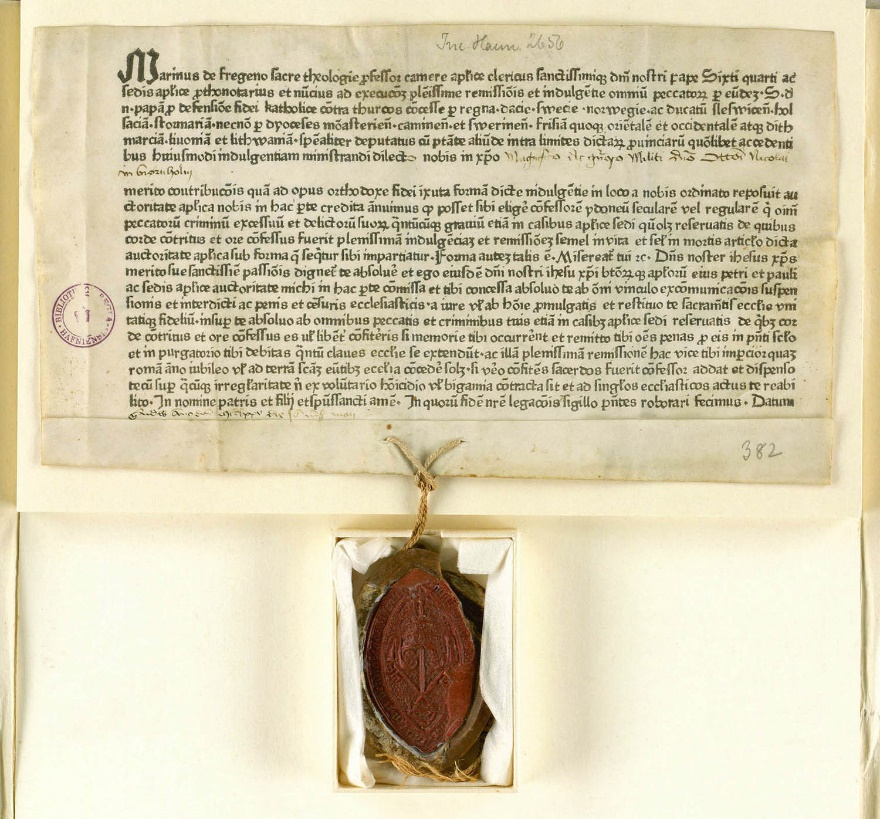 Inc. Haun. 2656
Marinus de Fregeno sacre theologie ꝓfessor camere aplice clericus sanctissimiqȝ dñi nostri pape Sixti quarti ac
sedis aplice ꝓthonotarius et nũcius ad execucõȝ plẽissime remissiõis et indulgẽtie omniũ peccatoꝝ ꝑ eũdeȝ · S · d
n · papã ꝓ defensiõe fidei katholice cõtra thurcos cõcesse ꝑ regna · dacie · swecie · norwegie · ac ducatũ sleswiceñ · hol
saciã · stormariã · necnõ ꝑ dyoceses mõasterieñ · camineñ · et swerineñ · frisiã quoqȝ oriẽtalẽ et occidentalẽ atqȝ dith
marciã · liuoniã et lithwaniã · spẽaliter deputatus cũ ptãte aliũde intra limites dictaꝝ ꝓuinciarũ quõlibet accedenti
bus huiusmodi indulgentiam ministrandi dilecto nobis in xp̃o
merito contribucõis quã ad opus orthodoxe fidei iuxta formã dicte indulgẽtie in loco a nobis ordinato reposuit au
ctoritate aplica nobis in hac ꝑte credita ãnuimus ꝙ posset sibi eligẽ cõfessorẽ ydoneũ secularẽ vel regularẽ q̇ oim̃
peccatorũ criminũ excessuũ et delictorũ suoꝝ q̃ntũcũqȝ grauiũ etiã in casibus aplice sedi quõlȝ reseruatis de quibus
corde cõtritus et ore cõfessus fuerit plenissimã indulgẽciaȝ et remissiõeȝ semel in vita et sel̃ in mortis articl̃o dicta
auctoritate aplica sub forma q̃ seq̃tur sibi impartiatur · Forma autez talis ẽ · Misereat̃ tui ⁊c · Dñs noster ihesus xp̃s
merito sue sanctissiẽ passiõis digneť te absoluẽ et ego eiusdẽ dñi nostri ihesu xp̃i btõꝝqȝ apl̃orũ eius petri et pauli
ac sedis aplice auctoritate michi in hac ꝑte cõmissa et tibi concessa absoluo te ab õni vinculo excõmunicacõis suspen
sionis et interdicti ac penis et cẽsuris ecclesiasticis · a iure vl̃ ab hoĩe ꝓmulgatis et restituo te sacramẽtis ecclie vni
tatiqȝ fideliũ · insuꝑ te absoluo ab omnibus peccatis et criminibus tuis etiã in casibȝ aplice sedi reseruatis de q̇bȝ cor
de cõtritus et ore cõfessus es vl̃ libẽt̃ cõfiteris si memorie tibi occurrẽnt et remitto tibi oẽs penas ꝓ eis in pñti sclõ
et in purgatorio tibi debitas q̃ntũ claues ecclie se extendũt · ac illã plenissimã remissionẽ hac vice tibi imꝑcior quaȝ
romã ãno iubileo vl̃ ad terrã scãȝ eũtibȝ ecclia cõcedẽ solȝ · si ṽo cõfitẽs sacerdos fuerit cõfessor addat et dispenso
tecũ suꝑ q̃cũqȝ irregl̃aritate ñ ex volũtario hõicidio vl̃ bigamia cõtracta sit et ad singl̃os eccliasticos actus te reabi
lito · In nomine patris et filij et spũssancti amẽ · In quorũ fidẽ nr̃e legacõis sigillo pñtes roborari fecimus · Datum
382